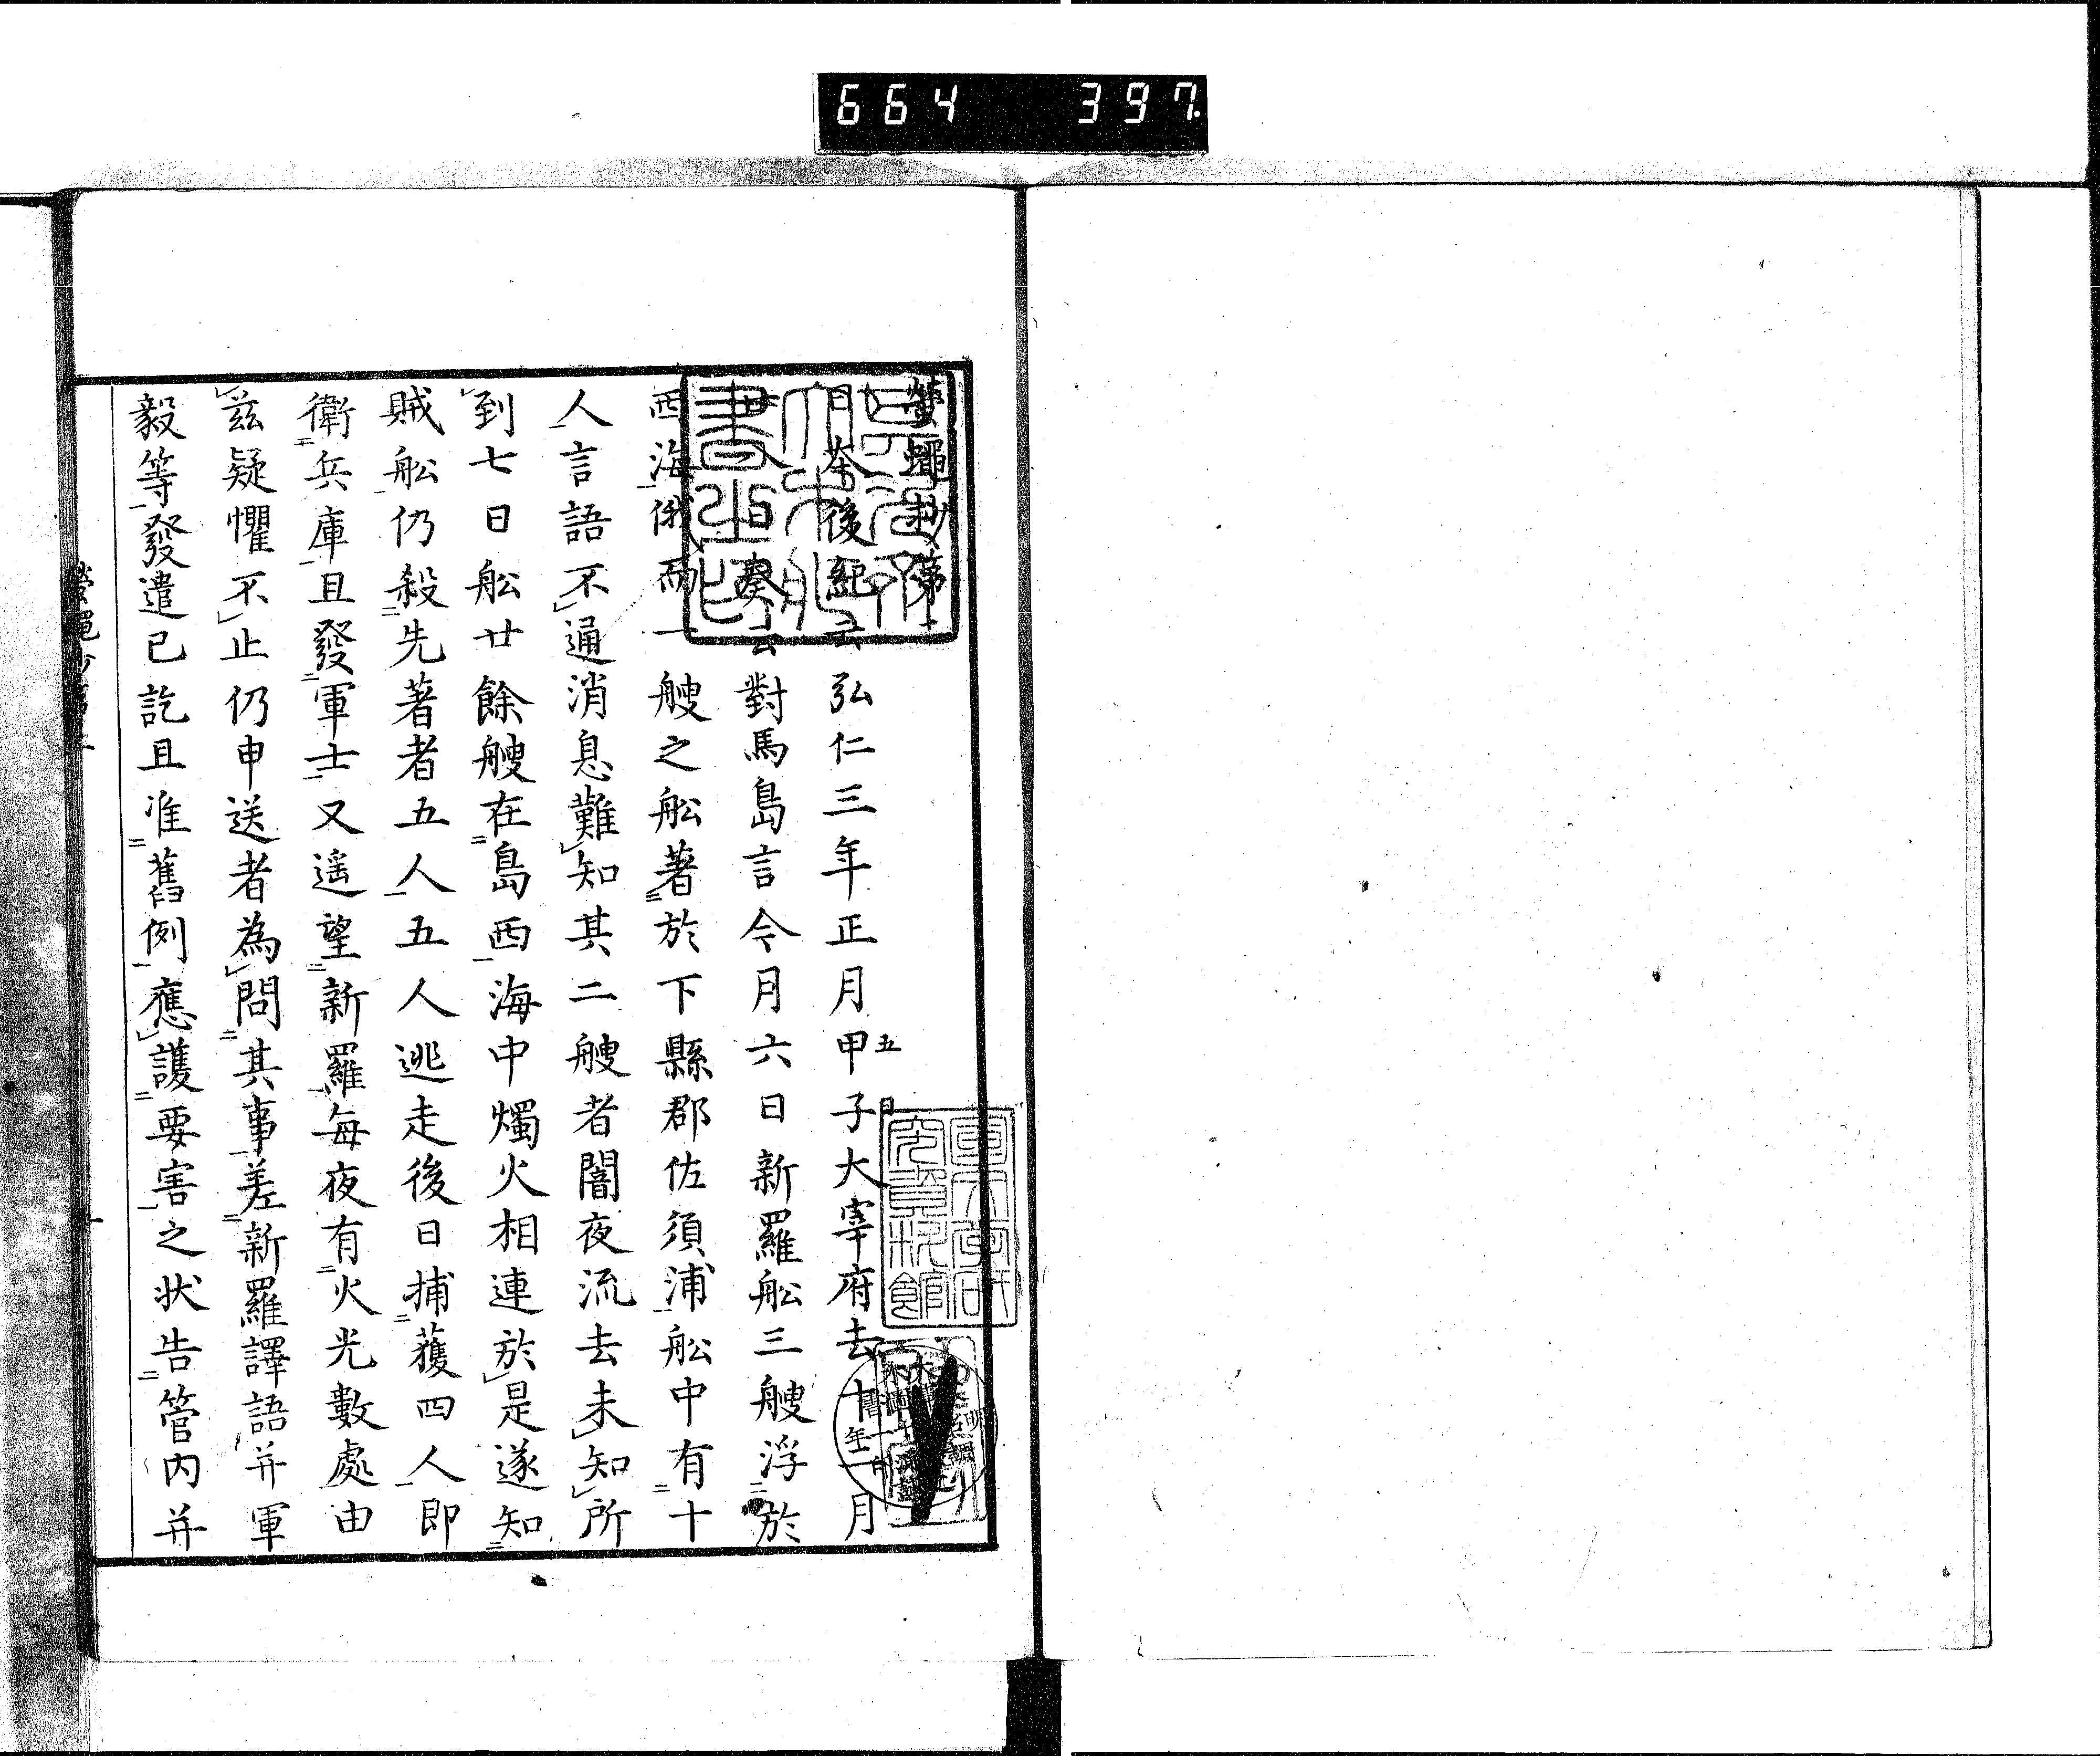 664 397
螢蠅抄第一
日本後紀云弘仁三年正月甲子五日大宰府去十二月
廿八日奏云對馬島言今月六日新羅舩三艘浮於
西海俄而一艘之舩著於下縣郡佐須浦舩中有十
人言語不通消息難知其二艘者闇夜流去未知所
到七日舩廿餘艘在島西海中燭火相連於是遂知
賊舩仍殺先著者五人五人逃走後日捕獲四人即
衛兵庫且發軍士又遥望新羅每夜有火光數處由
茲疑懼不止仍申送者為問其事差新羅譯語并軍
毅等發遣已訖且准舊例應護要害之状告管内并